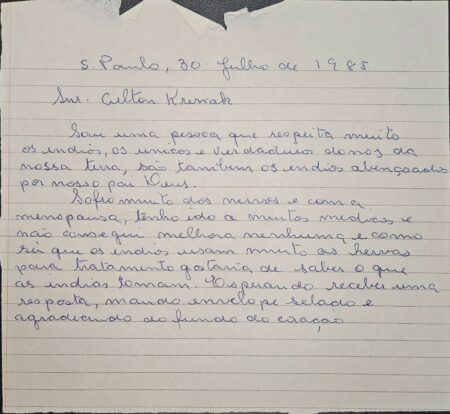 S. Paulo, 30 julho de 1985
Snr. Ailton Krenak
Sou uma pessoa que respeita muito
os indios, os unicos e verdadeiros donos da
nossa terra, são tambem os indios abençoados
por nosso pai Deus.
Sofro muito dos nervos e com a
menopausa, tenho ido a muitos medicos e
não consegui melhora nenhuma e como
sei que os indios usam muito as hervas
para tratamento gostaria de saber o que
as indias tomam. Esperando receber uma
resposta, mando envelope selado e
agradecendo do fundo do coração